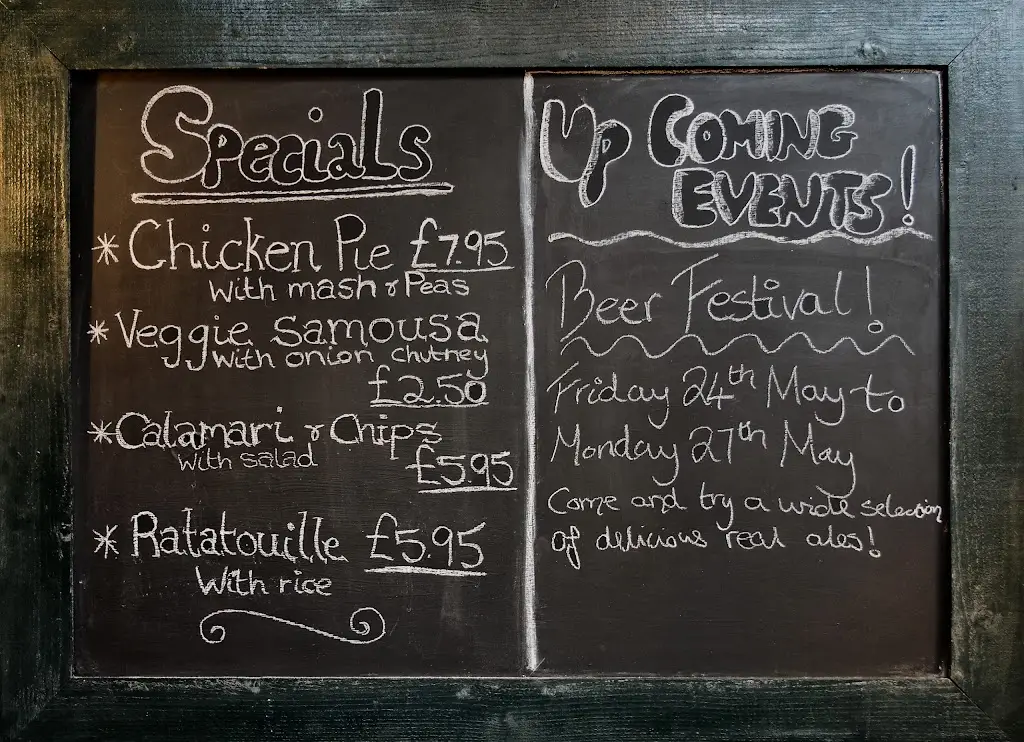 Specials
* Chicken Pie £7.95
with mash & Peas
* Veggie Samousa
with onion chutney
£2.50
* Calamari & Chips
with salad
£5.95
* Ratatouille £5.95
With rice
Up Coming
Events!
Beer Festival!
Friday 24th May to
Monday 27th May
Come and try a wide selection
of delicious real ales!